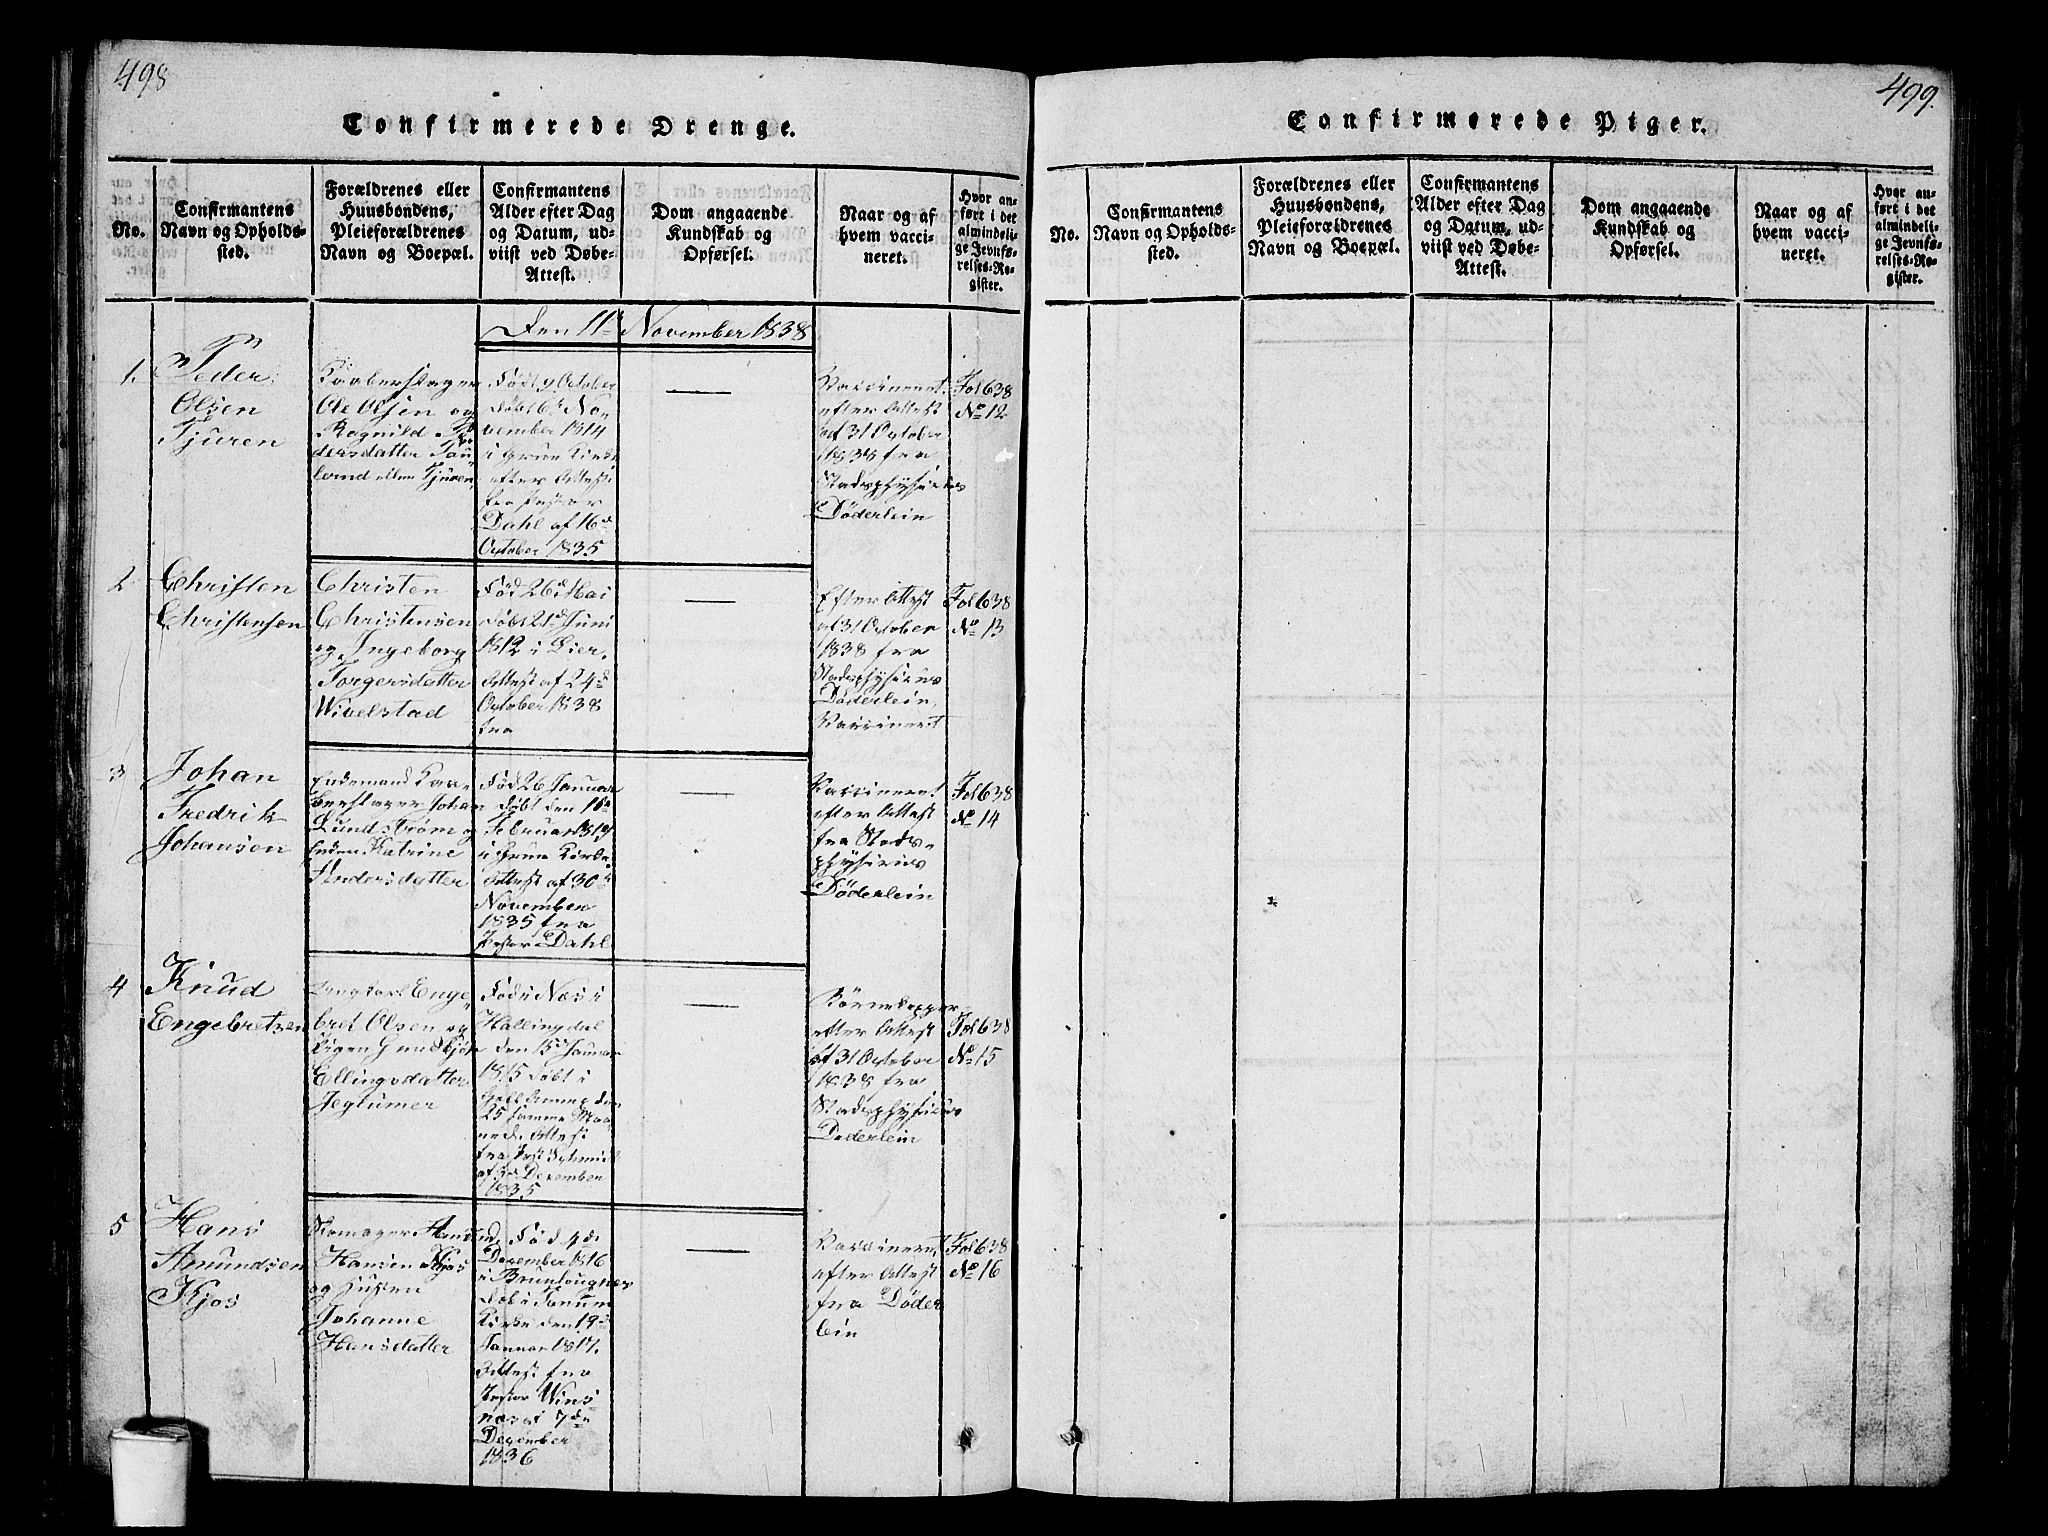 498
Confirmerede Drenge.
No.
Confirmantens
Navn og Opholds-
sted.
Forældrenes eller
Huusbondens,
Pleieforældrenes
Navn og Boepæl.
Confirmantens
Alder efter Dag
og Datum, ud-
viist ved Døbe-
Attest.
Dom angaaende
Kundskab og
Opførsel.
Naar og af
hvem vacci-
neret.
Hvor an-
ført i det
almindeli-
ge Jevnfø-
relses-Re-
gister.
Den 11te November 1838
1.
Peder
Olsen
Tjuren
Kaaberslager
Ole Olsen og
Ragnild
dersdatter
Tjuren
Født 9 October
døbt 6te No-
vember 1814
i Grue Kirke
efter Attest
fra Pastor
Dahl af 16de
October 1835
—
Vaccineret
efter Attest
af 31 October
1838 fra
Stadsphysicus
Døderlein
Fol 638
No 12
2
Christen
Christensen
Christen
Christensen
og Ingeborg
Torgersdatter
Wivelstad
Fød 26de Mai
døbt 21de Juni
1812 i Lier.
Attest af 24de
October 1838
fra
—
Efter Attest
af 31 October
1838 fra
Stadsphysicus
Døderlein
Vaccineret
Fol 638
No 13
3
Johan
Fredrik
Johansen
Johan
Lundstrøm og
Enken Katrine
Andersdatter
Fød 26 Januar
døbt den 16de
Februar 1819
i Grue Kirke
Attest af 30te
November
1835 fra
Pastor Dahl
—
Vaccineret
efter Attest
fra Stads-
physicus
Døderlein
Fol 638
No 14
4
Knud
Engebretsen
Enge-
bret Olsen og
Pigen
Ellingsdatter
Jeglumer
Fød i Næs i
Hallingdal
den 15de Januar
1815 døbt i
den
25 samme Maa-
ned. Attest
fra
December
1835
—
Børnekopper
efter Attest
af 31 October
1838 fra
Stadsphysicus
Døderlein
Fol 638
No 15
5
Hans
Amundsen
Kjos
Skomager
Hansen Kjos
og Hustru
Johanne
Hansdatter
Fød 4de
December 1816
i Brunlougnæs
døbt i Tanum
Kirke den 19de
Januar 1817.
Attest fra
Pastor Wins-
næs af 7de
December
1836
—
Vaccineret
efter Attest
fra Døder
lein
Fol 638
No 16
499.
Confirmerede Piger.
No.
Confirmantens
Navn og Opholds-
sted.
Forældrenes eller
Huusbondens,
Pleieforældrenes
Navn og Boepæl.
Confirmantens
Alder efter Dag
og Datum, ud-
viist ved Døbe-
Attest.
Dom angaaende
Kundskab og
Opførsel.
Naar og af
hvem vacci-
neret.
Hvor an-
ført i det
almindeli-
ge Jevnfø-
relses-Re-
gister.